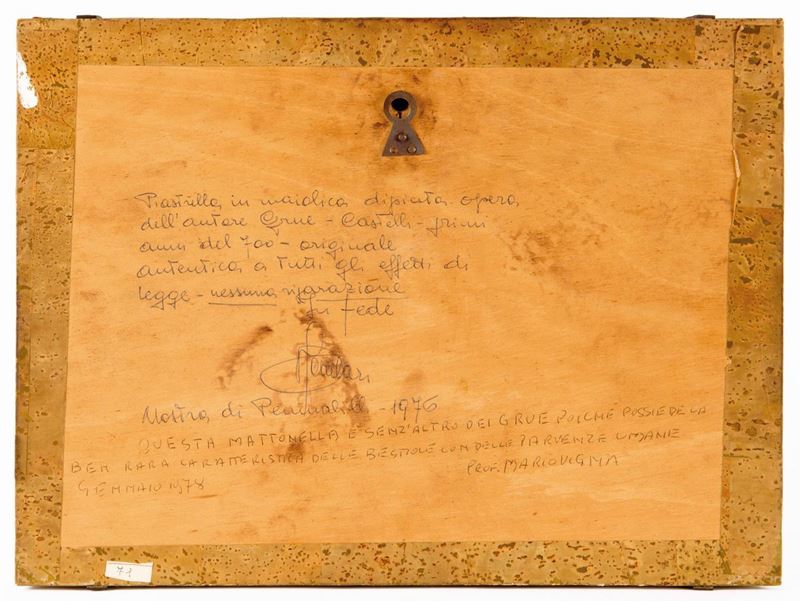 Piastrella in maiolica dipinta opera
dell'autore Grue - Castelli - primi
anni del 700 - originale
autentica a tutti gli effetti di
legge - nessuna riparazione
In fede
Mostra di Pennabilli - 1976
QUESTA MATTONELLA E SENZ'ALTRO DEI GRUE POICHE POSSIEDE LA
BEN RARA CARATTERISTICA DELLE BESTIOLE CON DELLE PARVENZE UMANE
PROF. MARIO VIGNA
GENNAIO 1978
71